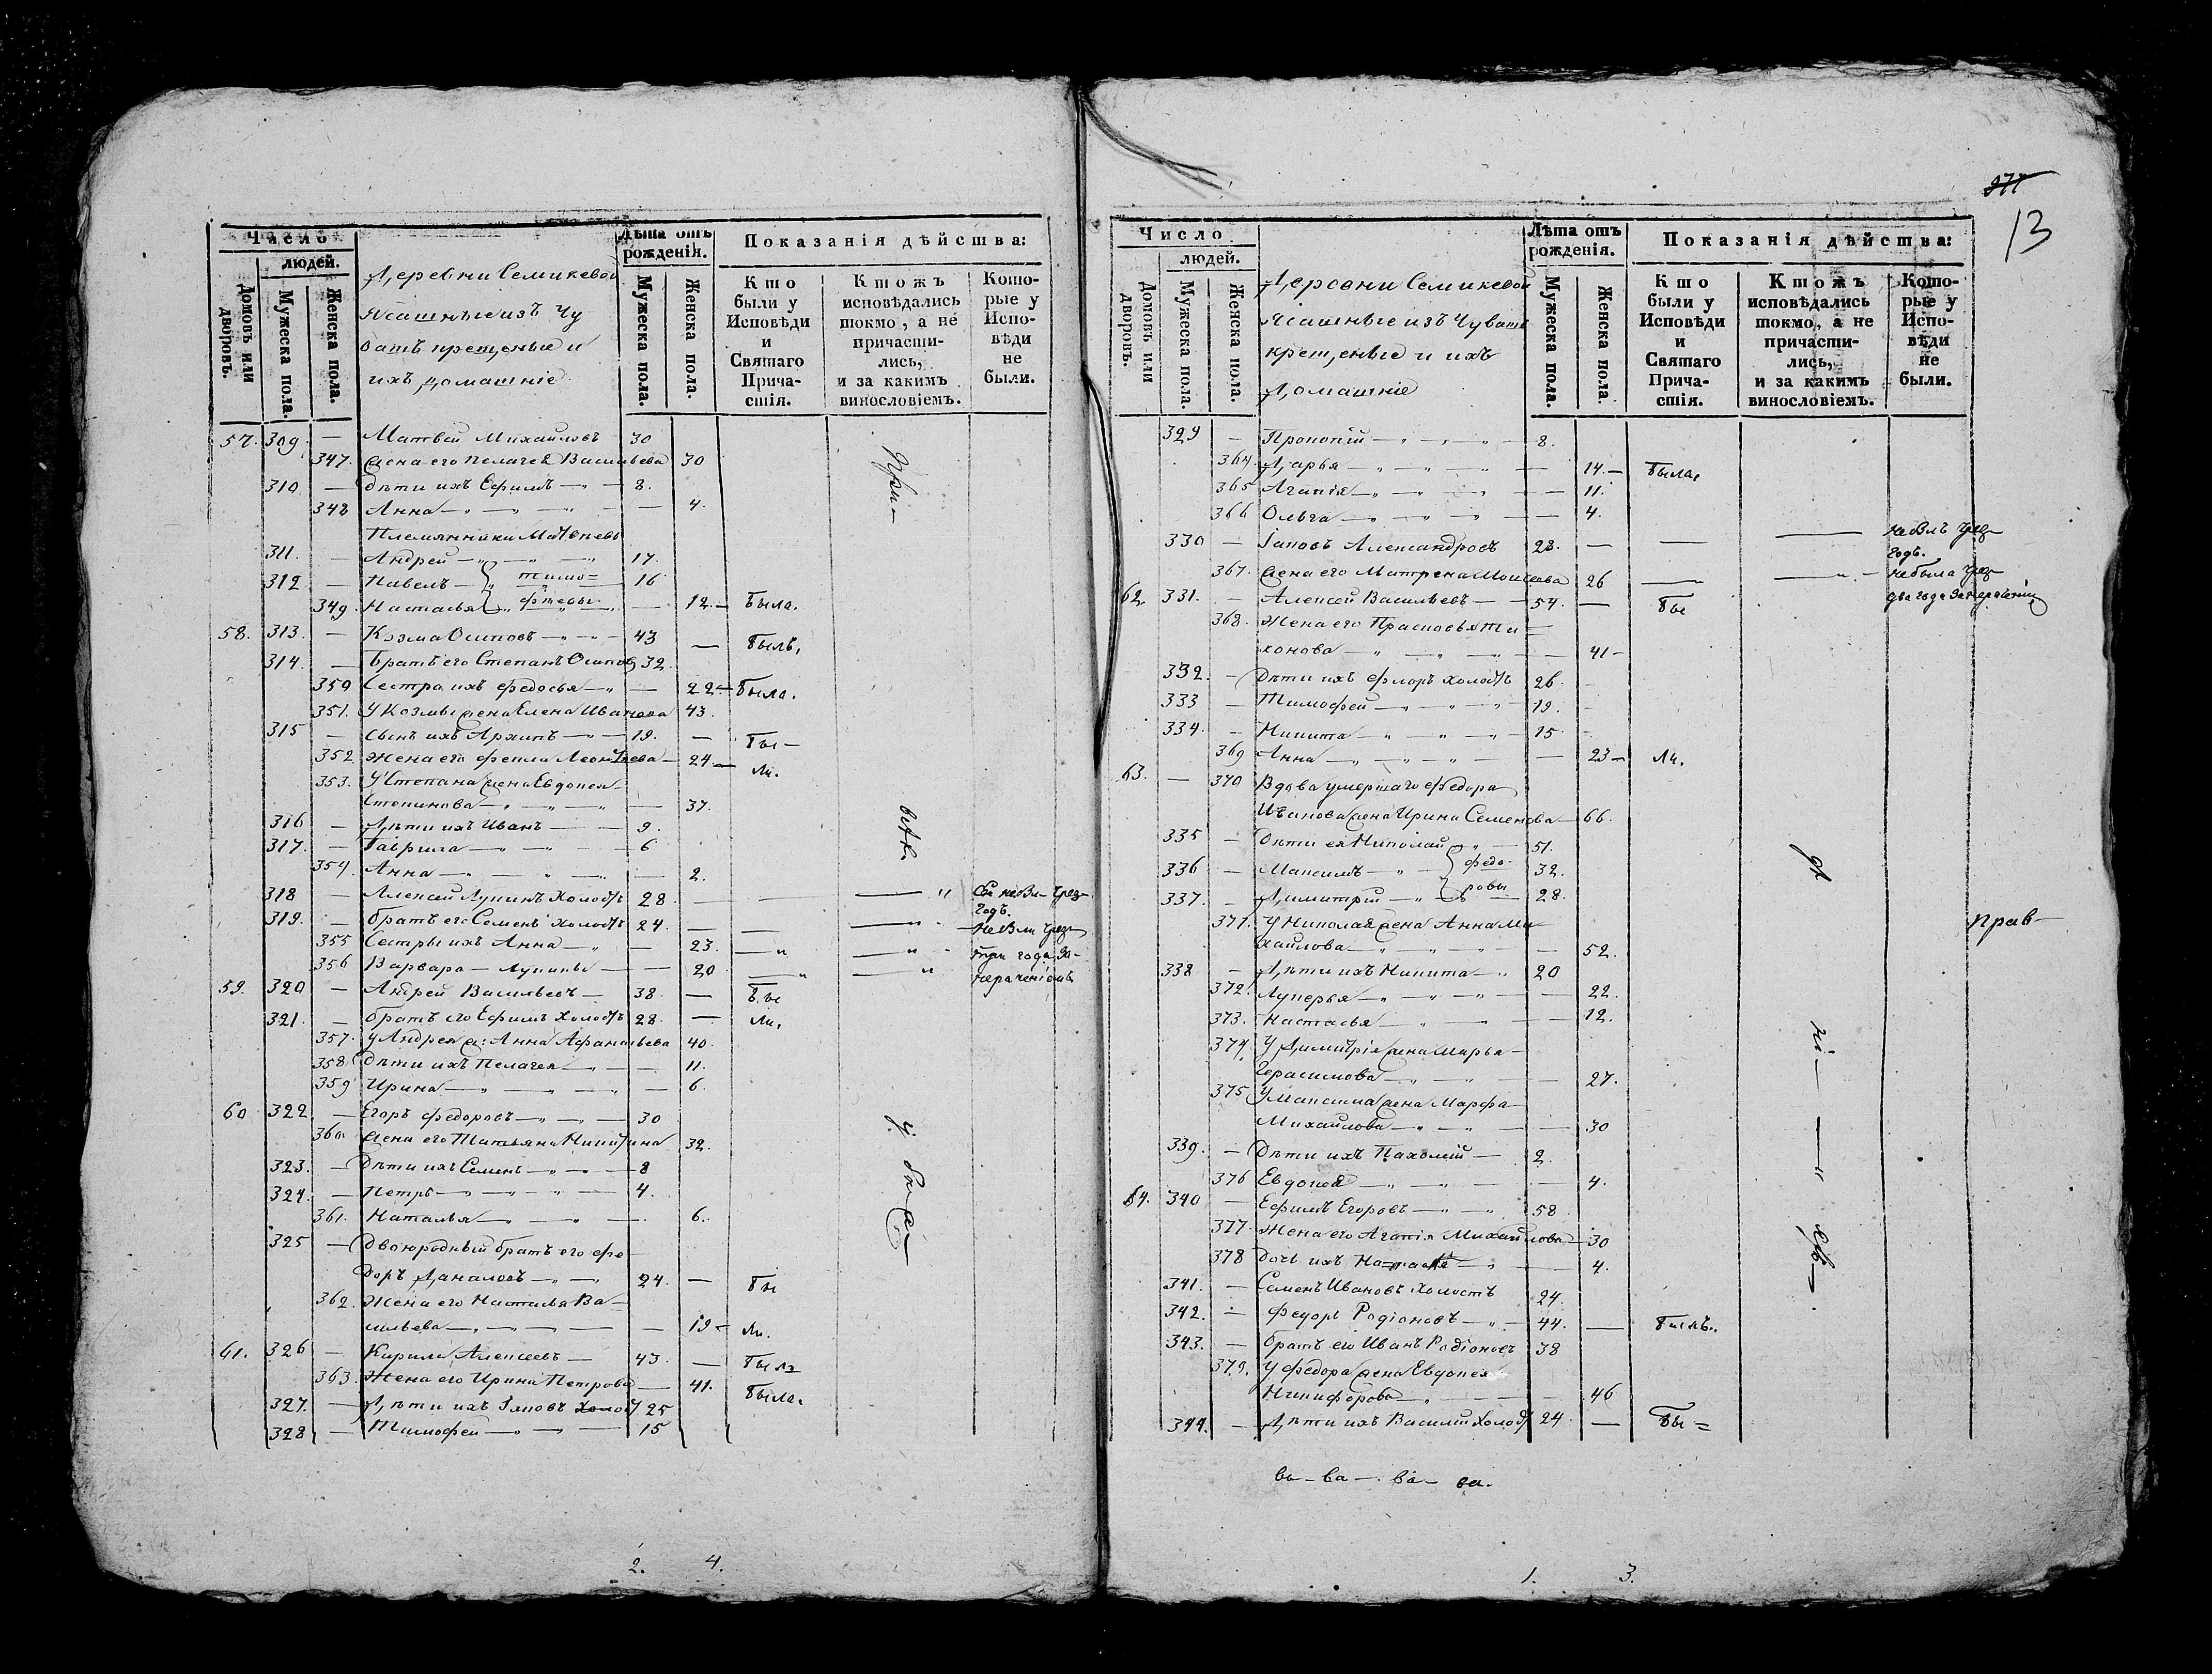 Число
людей.
Домовъ или дворовъ.
Мужеска пола.
Женска пола.
Деревни Семикевой
Ясашные изъ Чу
вашъ крещеные и
ихъ домашніе
Лѣта отъ рожденія.
Мужеска пола.
Женска пола.
Показанія дѣйства:
Кто были у Исповѣди и Святаго Причастія.
Ктожъ исповѣдались токмо, а не причастились, и за какимъ винословіемъ.
Которые у Исповѣди не были.
57. 309. — Матвей Михайловъ 30
347. жена его Пелагея Васильева 30
310 — дѣти ихъ Ефимъ — 8.
348 Анна — 4.
Племянники Матвѣевы
311. — Андрей — 17.
312 — Павелъ — тимо= 16
349. Настасья — фѣевы — 12. — была.
58. 313. — Козма Осиповъ — 43 — былъ,
314. — братъ его Степанъ Осиповъ 32.
350 Сестра ихъ Федосья — 22 — была.
351. У Козмы жена Елена Иванова 43.
315 — сынъ ихъ Архипъ — 19. — бы —
352 Жена его Фекла Леонтьева — 24 — ли.
353. У Степана жена Евдокея
Степанова — 37.
316 — Дѣти ихъ Иванъ — 9.
317. — Гаврила — 6
354. Анна — 2.
318 — Алексей Лукинъ Холостъ 28
годъ.
319. — братъ его Семенъ Холостъ 24.
355 Сестры ихъ Анна — 23. три года за-
356 Варвара — Лукины — 20 нерачениемъ
59. 320 — Андрей Васильевъ — 38. — бы
321. — братъ его Ефимъ Холостъ 28 — ли.
357. У Андрея ж: Анна Афанасьева 40.
358. Дѣти ихъ Пелагея — 11.
359 Ирина — 6.
60. 322. — Егоръ Федоровъ — 30
360. жена его Татьяна Никитина 32.
323. — Дѣти ихъ Семенъ — 8
324. — Петръ — 4.
361. Наталья — 6.
325 — Двоюродный братъ его Фе
доръ Даниловъ — 24. — бы
362. Жена его Настасья Ва —
сильева — 19 — ли.
61. 326 — Кирила Алексеевъ — 43. — былъ
363. Жена его Ирина Петрова — 41. была.
327. — Дѣти ихъ Іаковъ Холост 25
328 — Тимофей — 15
2. 4.
277
13
Число
людей.
Домовъ или дворовъ.
Мужеска пола.
Женска пола.
Деревни Семикевой
Ясашные изъ Чувашъ
крещеные и ихъ
Домашніе
Лѣта отъ рожденія.
Мужеска пола.
Женска пола.
Показанія дѣйства:
Кто были у Исповѣди и Святаго Причастія.
Ктожъ исповѣдались токмо, а не причастились, и за какимъ винословіемъ.
Которые у Исповѣди не были.
329 — Прокопій — 8.
364. Дарья — 14. — была,
365 Агапія — 11.
366 Ольга — 4.
330 — Іаковъ Александровъ 28. —
годъ.
367. жена его Матрена Моисеева 26 не была
62. 331. — Алексей Васильевъ — 54. — бы два года за нерачениемъ
368. Жена его Прасковья Ти =
хонова — 41 —
332. — Дѣти ихъ Флоръ холостъ 26.
333 — Тимофей — 19.
334. — Никита — 15
369 Анна — 23 — ли.
63. — 370 Вдова умершаго Федора
жена Ирина Семенова — 66.
335 — Дѣти ея Николай — 51.
336 — Максимъ — Федо- 32.
337. — Димитрій — ровы 28.
371. У Николая жена Анна Ми
хайлова — 52. прав —
338 — Дѣти ихъ Никита — 20
372. Лукерья — 22.
373. Настасья — 12.
374. У Димитрія жена Марья —
Герасимова — 27.
375 У Максима жена Марфа —
Михайлова — 30
339. — Дѣти ихъ Пахомій — 2.
376 Евдокея — 4.
64. 340 — Ефимъ Егоровъ — 58
377. Жена его Агапія Михайлова — 30
378 Дочь ихъ — 4.
341. — Семенъ Ивановъ холостъ 24.
342. — Федоръ Родіоновъ — 44. — былъ.
343. — братъ его Иванъ Родіоновъ 38
379. У Федора жена Евдокея
Никифорова — 46
344. — Дѣти ихъ Василій Холост 24. — бы =
ва — ва — ва — ва.
1. 3.